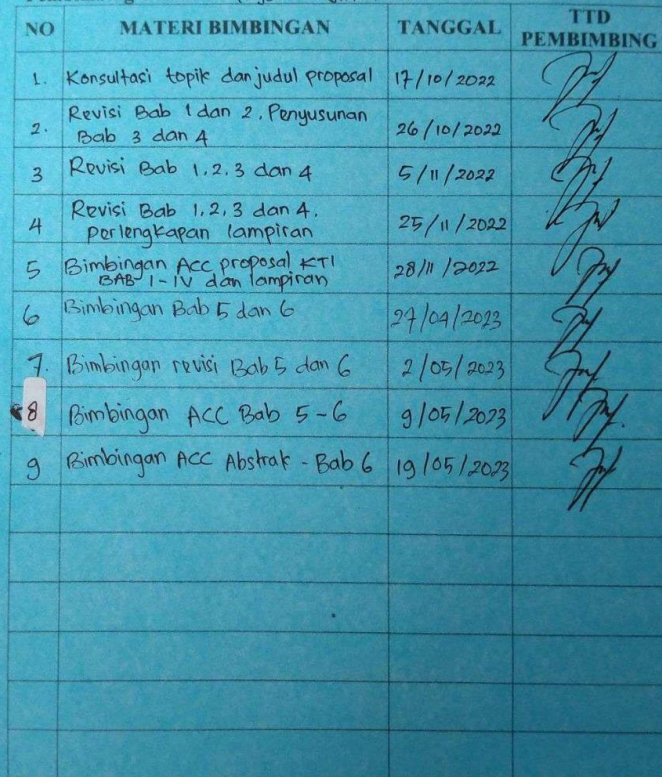 NO MATERI BIMBINGAN TANGGAL TTD PEMBIMBING
1. Konsultasi topik dan judul proposal 17/10/2022
2. Revisi Bab 1 dan 2. Penyusunan
Bab 3 dan 4 26/10/2022
3 Revisi Bab 1.2.3 dan 4 5/11/2022
4 Revisi Bab 1,2,3 dan 4.
perlengkapan lampiran 25/11/2022
5 Bimbingan Acc proposal KTI
BAB I-IV dan lampiran 28/11/2022
6 Bimbingan Bab 5 dan 6 27/04/2023
7. Bimbingan revisi Bab 5 dan 6 2/05/2023
8 Bimbingan ACC Bab 5-6 9/05/2023
9 Bimbingan ACC Abstrak - Bab 6 19/05/2023